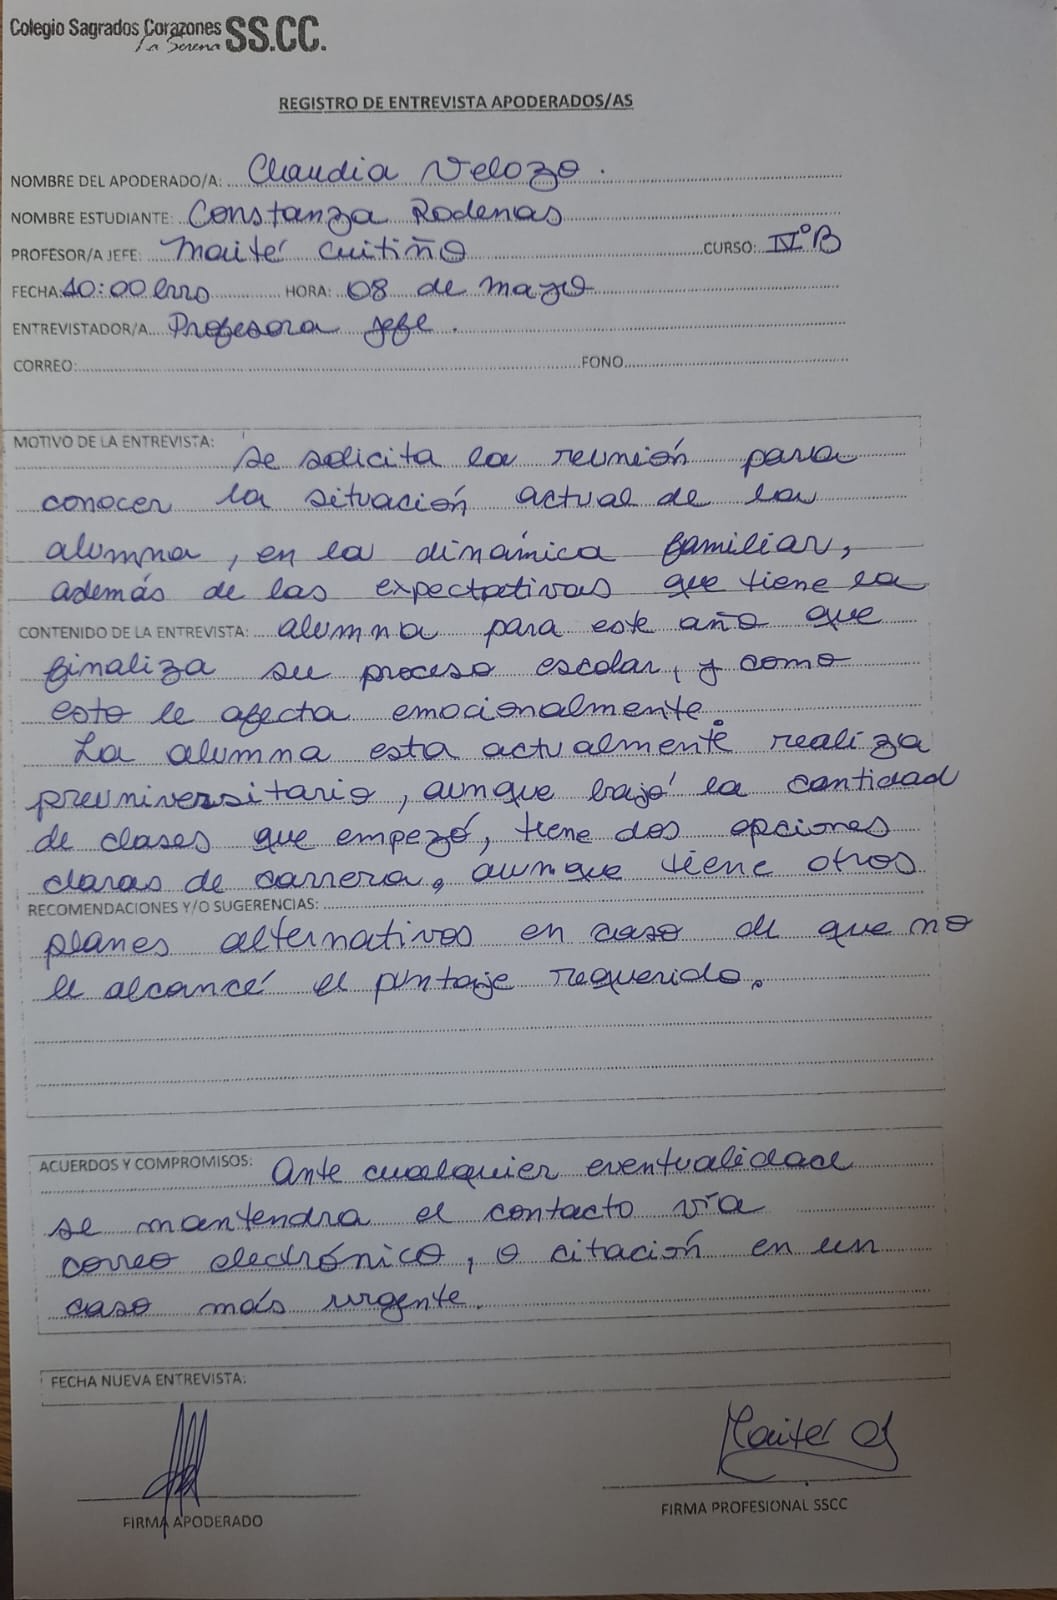 Colegio Sagrados Corazones SS.CC.
La Serena
REGISTRO DE ENTREVISTA APODERADOS/AS
NOMBRE DEL APODERADO/A: Claudia Velozo.
NOMBRE ESTUDIANTE: Constanza Rodenas
PROFESOR/A JEFE: Maité Cuitiño CURSO: IV°B
FECHA: 10:00 hrs HORA: 08 de Mayo
ENTREVISTADOR/A Profesora jefe.
CORREO: FONO
MOTIVO DE LA ENTREVISTA: Se solicita la reunión para
conocer la situación actual de la
alumna, en la dinámica familiar,
además de las expectativas que tiene la
CONTENIDO DE LA ENTREVISTA: alumna para este año que
finaliza su proceso escolar, y como
esto le afecta emocionalmente.
La alumna esta actualmente realiza
preuniversitario, aunque bajó la cantidad
de clases que empezó, tiene dos opciones
claras de carrera, aunque tiene otros
RECOMENDACIONES Y/O SUGERENCIAS:
planes alternativos en caso de que no
le alcancé el puntaje requerido.
ACUERDOS Y COMPROMISOS: Ante cualquier eventualidad
se mantendra el contacto vía
correo electrónico, o citación en un
caso más urgente.
FECHA NUEVA ENTREVISTA:
Maité
FIRMA APODERADO FIRMA PROFESIONAL SSCC